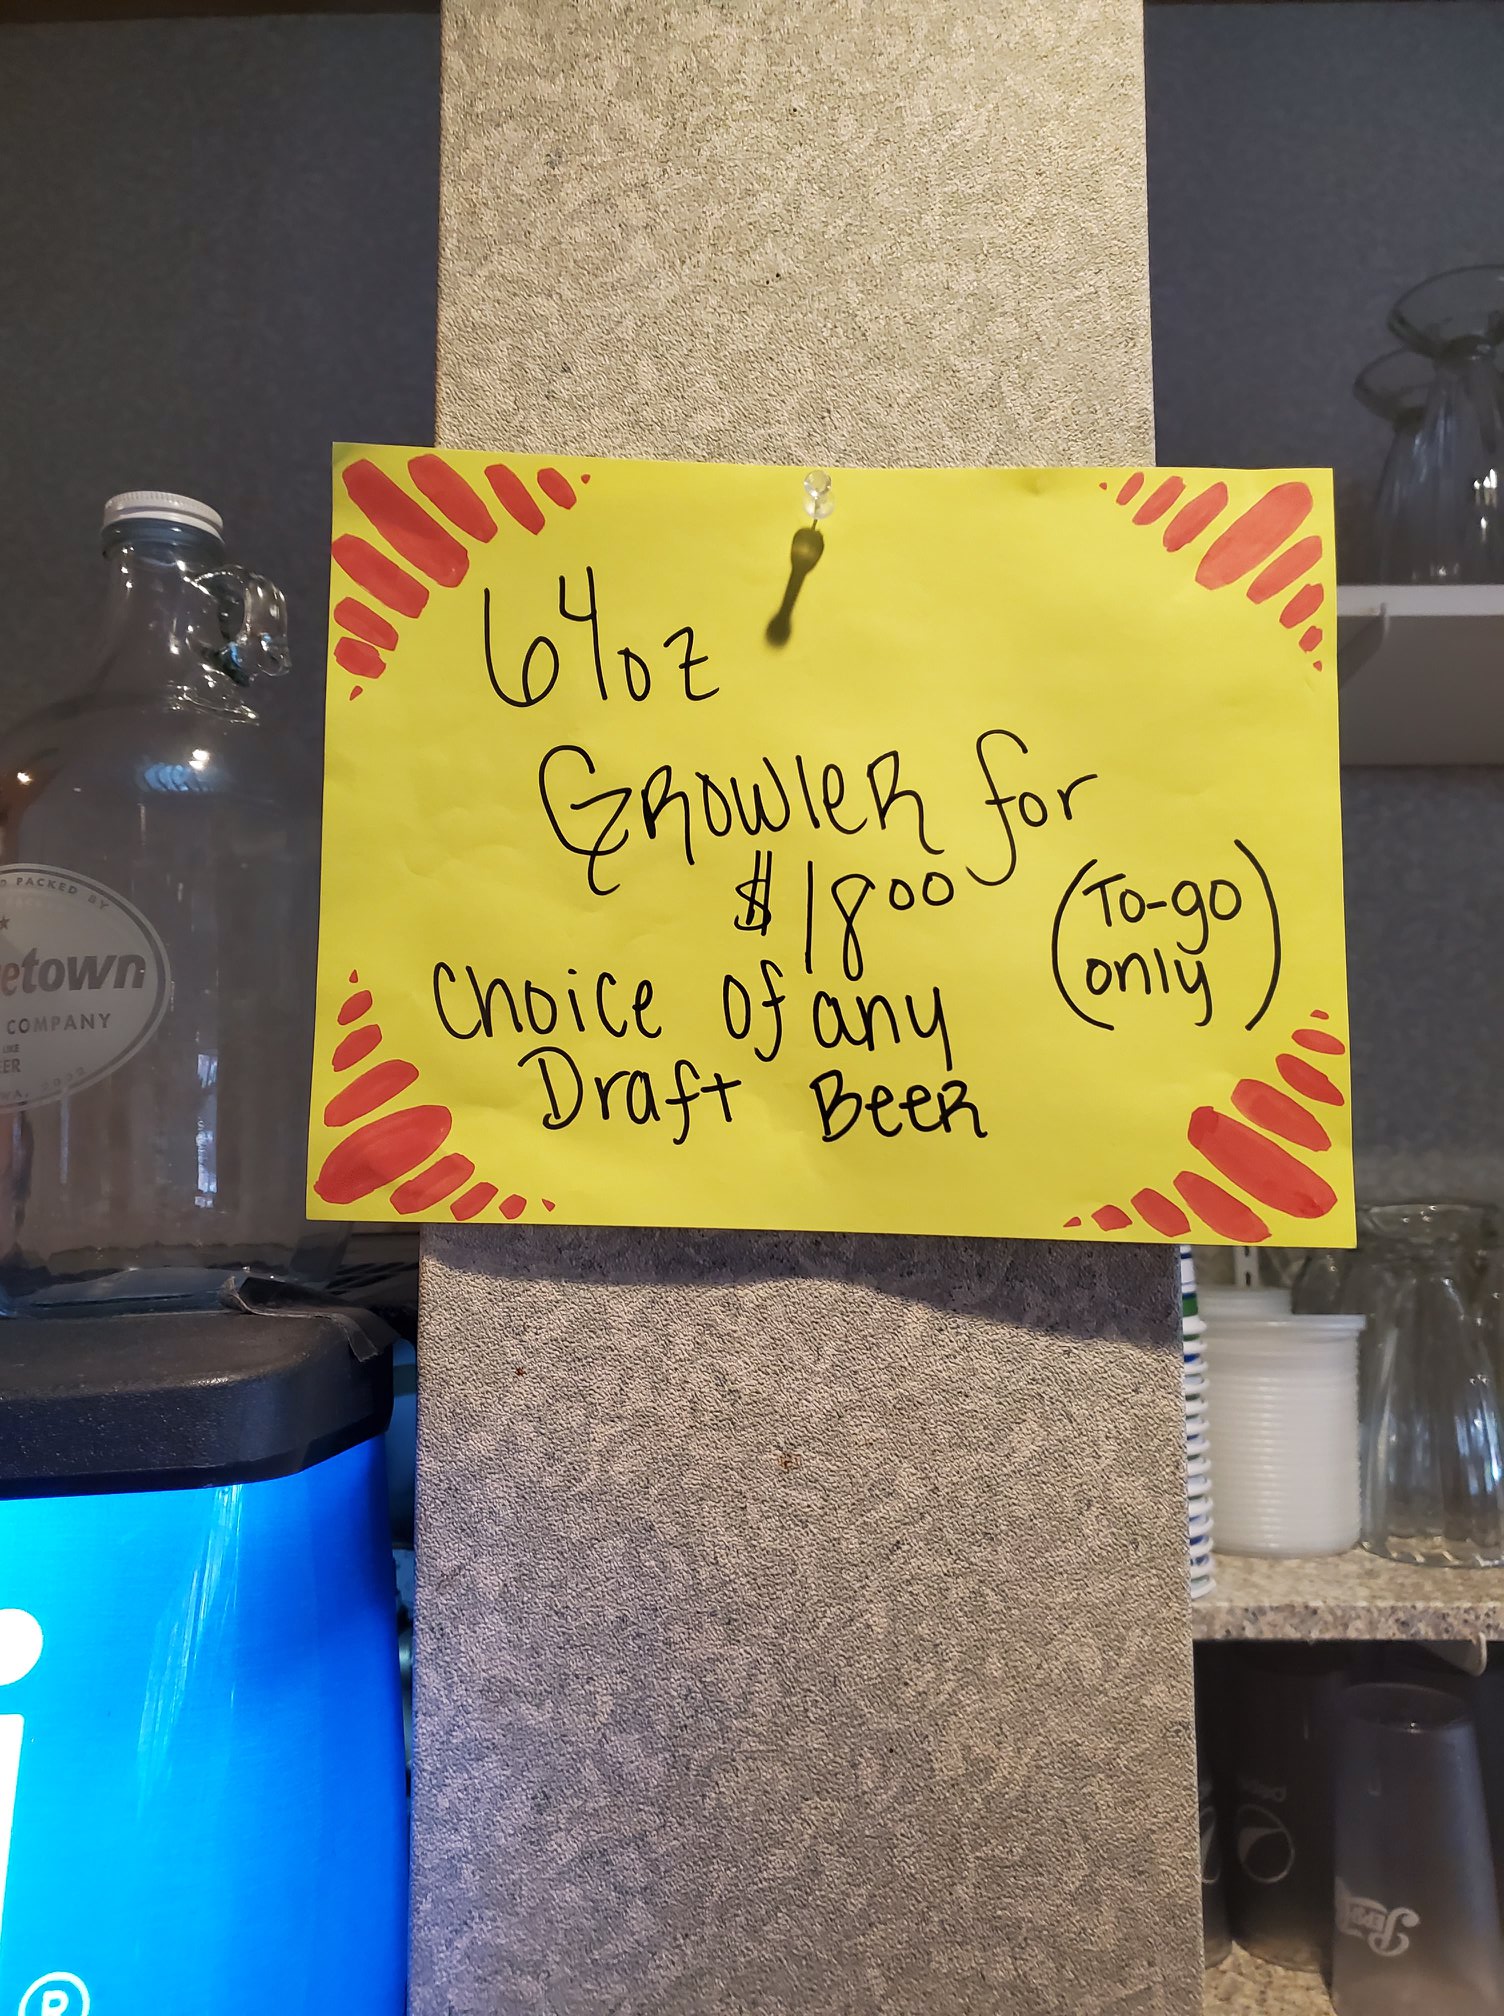 64oz
GRowleR for
$18⁰⁰
(To-go
only)
Choice of any
Draft BeeR
PACKED BY
etown
COMPANY
LIKE
i
®